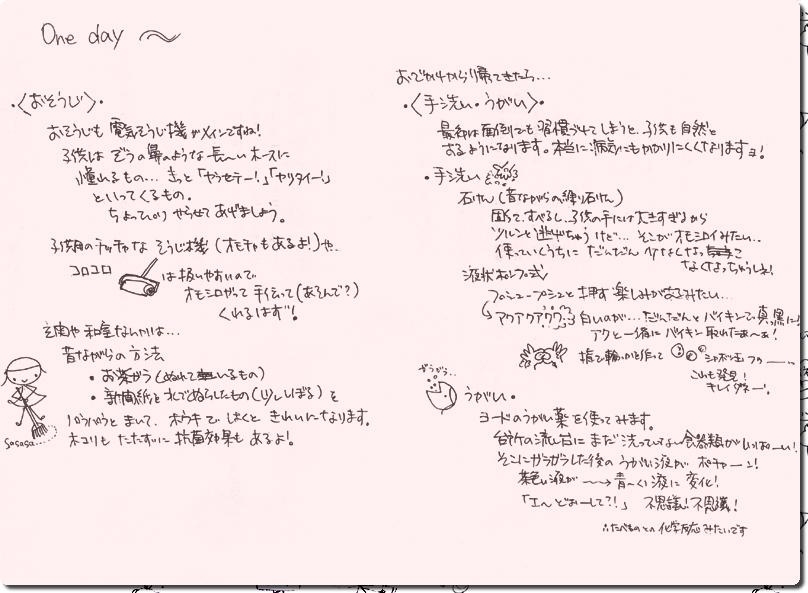 One day 〜
・〈おそうじ〉・
おそうじも 電気そうじ機がメインですね!
子供は ぞうの鼻のような 長〜いホースに
憧れるもの… きっと「ヤラセテー!」「ヤリタイー!」
といってくるもの。
ちょっぴり やらせて あげましょう。
子供用のチッチャな そうじ機(オモチャもあるよ!)や、
コロコロ は扱いやすいので
オモシロがって 手伝って(あそんで?)
くれるはず!
玄関や 和室なんかは…
昔ながらの方法
・お茶がら(ぬれているもの)
・新聞紙を 水でぬらしたもの(少ししぼる)を
パラパラと まいて、ホウキで はくと きれいになります。
ホコリも たたずに 抗菌効果も あるよ!
sasasa...
おでかけから帰ってきたら…
・〈手洗い・うがい〉・
最初は面倒でも 習慣づけてしまうと、子供も自然と
するようになります。本当に病気にもかかりにくくなりますョ!
・手洗い
石けん(昔ながらの練り石けん)
固くて、すべるし…子供の手には大きすぎるから
ツルンと 逃げちゃうけど… そこが オモシロイみたい…
使っていくうちに だんだん 小さくなっ こ
なくなっちゃうしネ!
液状ポンプ式
プシュープシュと 押す 楽しみがあるみたい…
アワアワアワワ 白いのが… だんだんと バイキンで 真っ黒に!
アワと一緒に バイキン 取れたぁ〜ぁ!
指で輪っかを作って シャボン玉 フゥー
これも発見!
キレイダネー!
ガラガラ…
うがい・
ヨードのうがい薬を使ってみます。
台所の流し台に まだ洗っていない 食器類が いっぱーい!
そこにガラガラした後の うがい液が ポチャーン!
茶色い液が 〜→ 青〜くい液に 変化!
「エ〜 どおーして?!」 不思議! 不思議!
∴たべものとの 化学反応みたいです